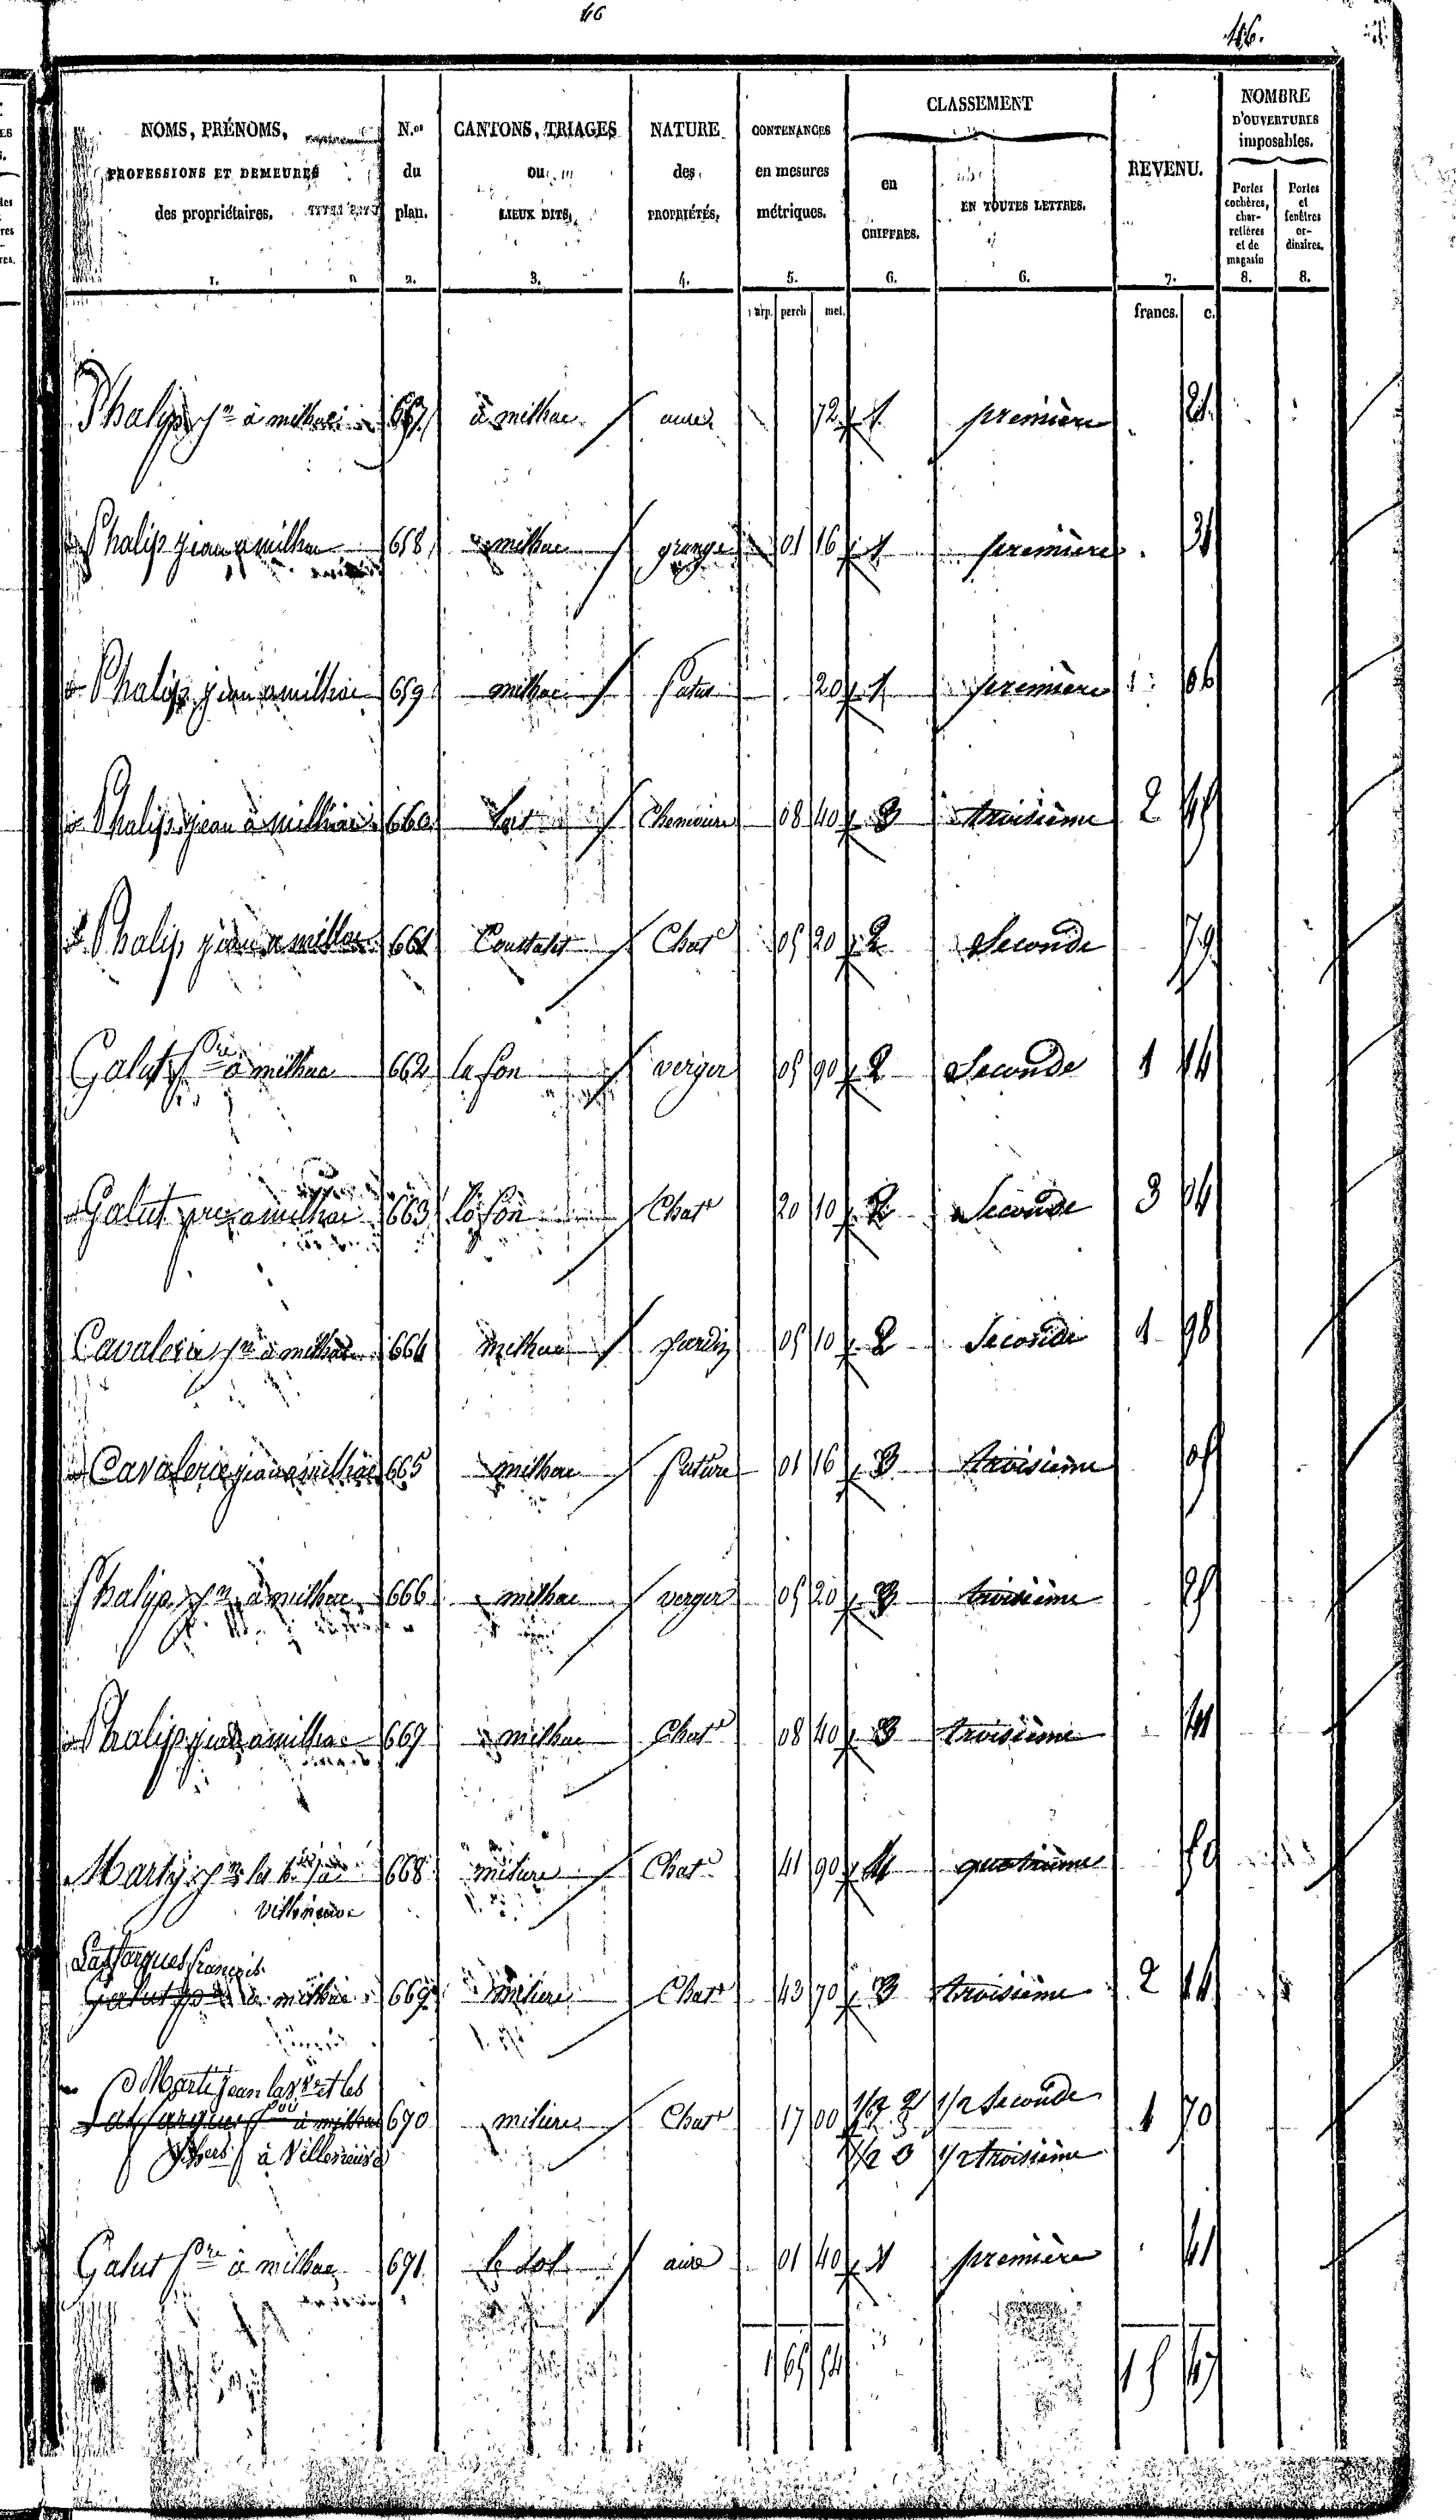 46
46.
NOMS, PRÉNOMS, N.os CANTONS, TRIAGES NATURE CONTENANCES CLASSEMENT REVENU. NOMBRE D'OUVERTURES imposables.
PROFESSIONS ET DEMEURES du OU des en mesures en EN TOUTES LETTRES. Portes cochères, charretières et de magasin Portes et fenêtres ordinaires.
des propriétaires. plan. LIEUX DITS. PROPRIÉTÉS. métriques. CHIFFRES.
1. 2. 3. 4. 5. 6. 6. 7. 8. 8.
arp. perch met. francs. c.
Phalip jn à milhac 657 à milhac 72 1 première 21
Phalip jean a milhac 658 milhac grange 01 16 1 première 31
Phalip jean a milhac 659 milhac Patus 20 1 première 06
Phalip jean à milhac 660 08 40 3 troisième 2 45
Phalip jean a milhac 661 Coustalet Chat 05 20 2 Seconde 79
Galut pre à milhac 662 la fon verger 05 90 2 Seconde 1 14
Galut pre a milhac 663 la fon Chat 20 10 2 Seconde 3 04
Cavalerie jn à milhac 664 milhac jardin 05 10 2 Seconde 1 98
Cavalerie jean a milhac 665 milhac Pature 01 16 3 troisième 05
Phalip jn à milhac 666 milhac verger 05 20 3 troisième 25
Phalip jean a milhac 667 milhac Chat 08 40 3 troisième 41
Marty jn 668 miliere Chat 41 90 4 quatrième 50
villeneuve
Laffargues françois
Galut à milhac 669 miliere Chat 43 70 3 troisième 2 14
Marti jean la ve et les
Laffargues à milhac 670 miliere Chat 17 00 1/2 2 1/2 Seconde 1 70
à Villeneuve 1/2 3 1/2 troisième
Galut pre à milhac 671 le sol aire 01 40 1 première 41
1 65 54 15 47